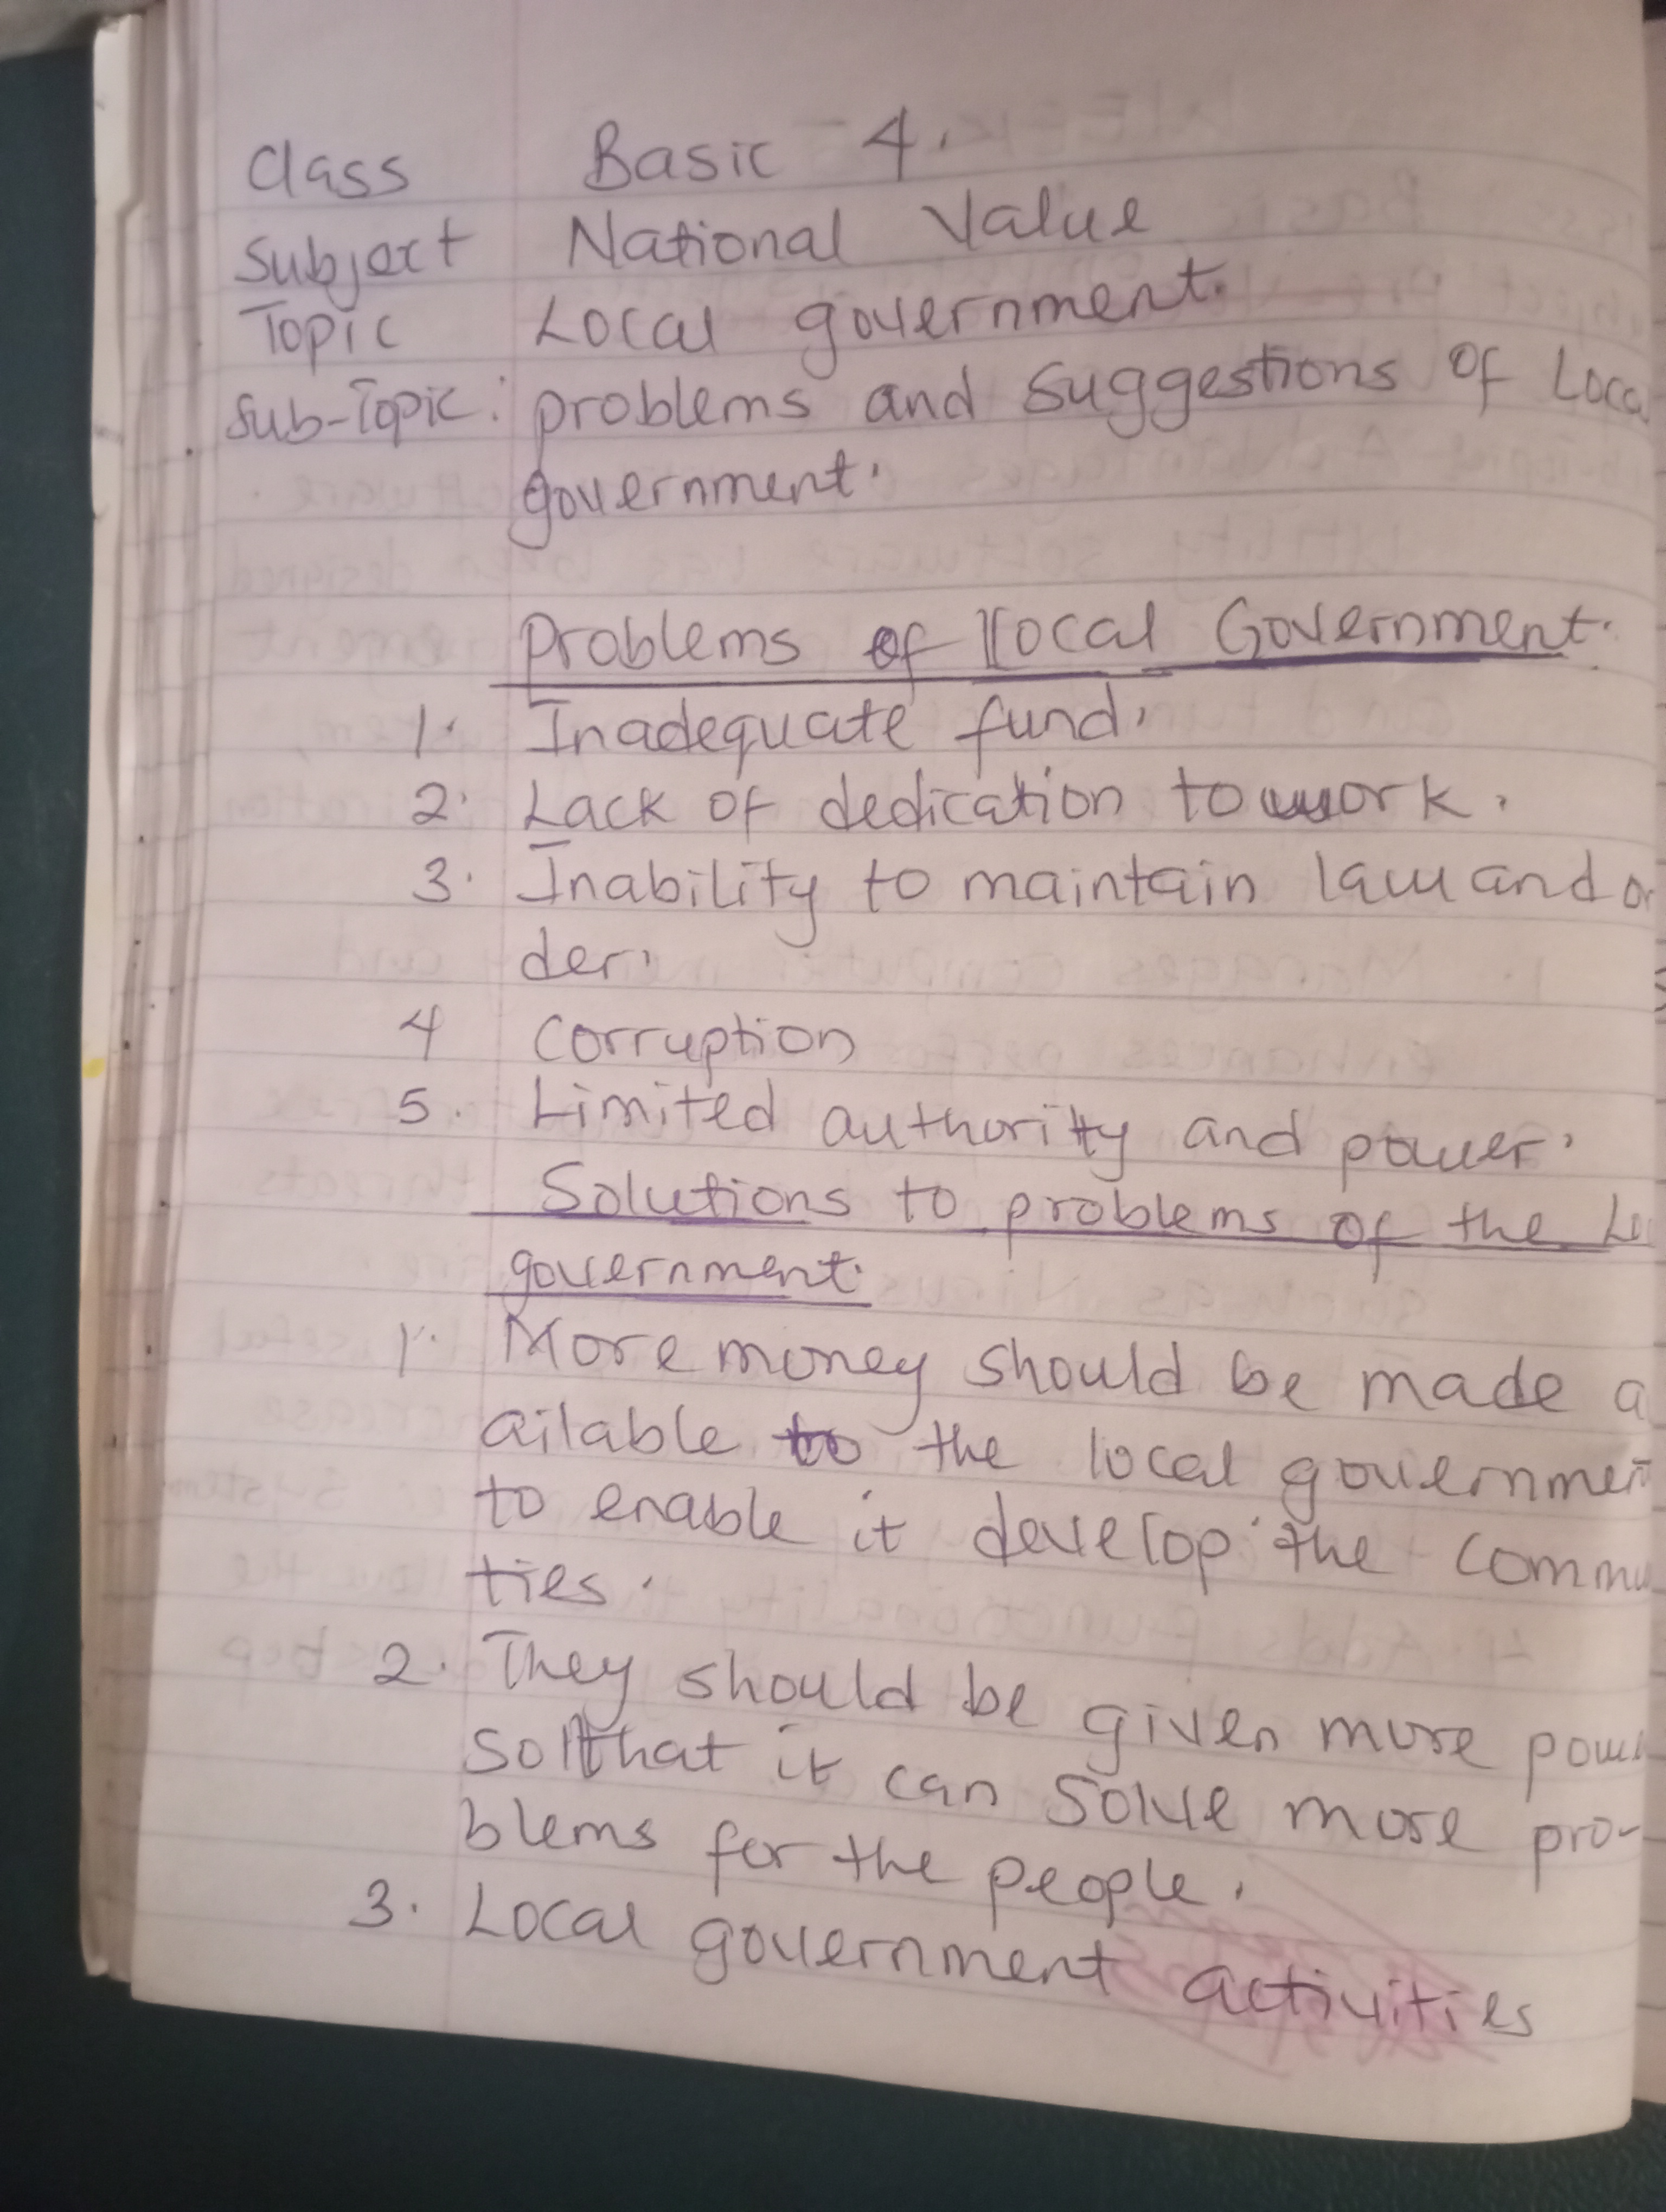 Class Basic 4.
Subject National Value
Topic Local government.
Sub-Topic: problems and suggestions of Loca
government.
Problems of local Government.
1. Inadequate fund.
2. Lack of dedication to work.
3. Inability to maintain law and or
der.
4 Corruption
5. Limited authority and power.
Solutions to problems of the Lo
government.
1. More money should be made a
ailable to the local governmen
to enable it develop the commu
ties.
2. They should be given more pow
so that it can solve more pro-
blems for the people.
3. Local government activities